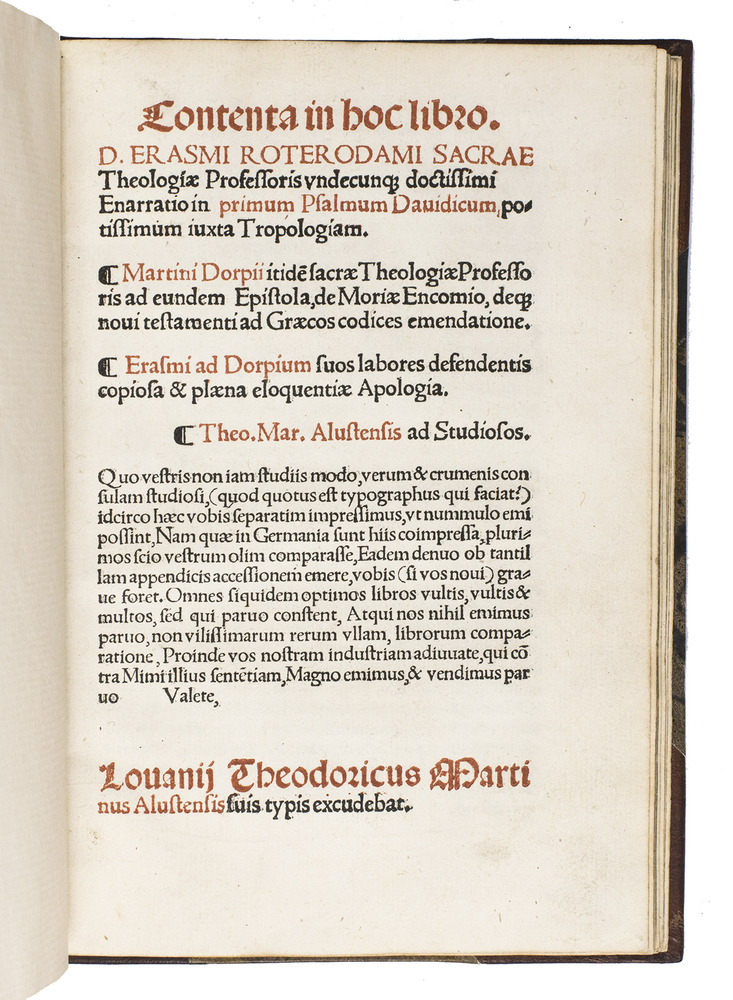 Contenta in hoc libro.
D. ERASMI ROTERODAMI SACRAE
Theologiæ Professoris vndecunqꝫ doctissimi
Enarratio in primum Psalmum Dauidicum, po⸗
tissimum iuxta Tropologiam.
¶ Martini Dorpii itidẽ sacræ Theologiæ Professo
ris ad eundem Epistola, de Moriæ Encomio, deqꝫ
noui testamenti ad Græcos codices emendatione.
¶ Erasmi ad Dorpium suos labores defendentis
copiosa & plæna eloquentiæ Apologia.
¶ Theo. Mar. Alustensis ad Studiosos.
Quo vestris non iam studiis modo, verum & crumenis con
sulam studiosi, (quod quotus est typographus qui faciat?)
idcirco hæc vobis separatim impressimus, vt nummulo emi
possint, Nam quæ in Germania sunt hiis coimpressa, pluri⸗
mos scio vestrum olim comparasse, Eadem denuo ob tantil
lam appendicis accessionem emere, vobis (si vos noui) gra⸗
ue foret. Omnes siquidem optimos libros vultis, vultis &
multos, sed qui paruo constent, Atqui nos nihil emimus
paruo, non vilissimarum rerum vllam, librorum compa⸗
ratione, Proinde vos nostram industriam adiuuate, qui cõ
tra Mimi illius sentẽtiam, Magno emimus, & vendimus par
uo Valete,
Louanij Theodoricus Marti
nus Alustensis suis typis excudebat.